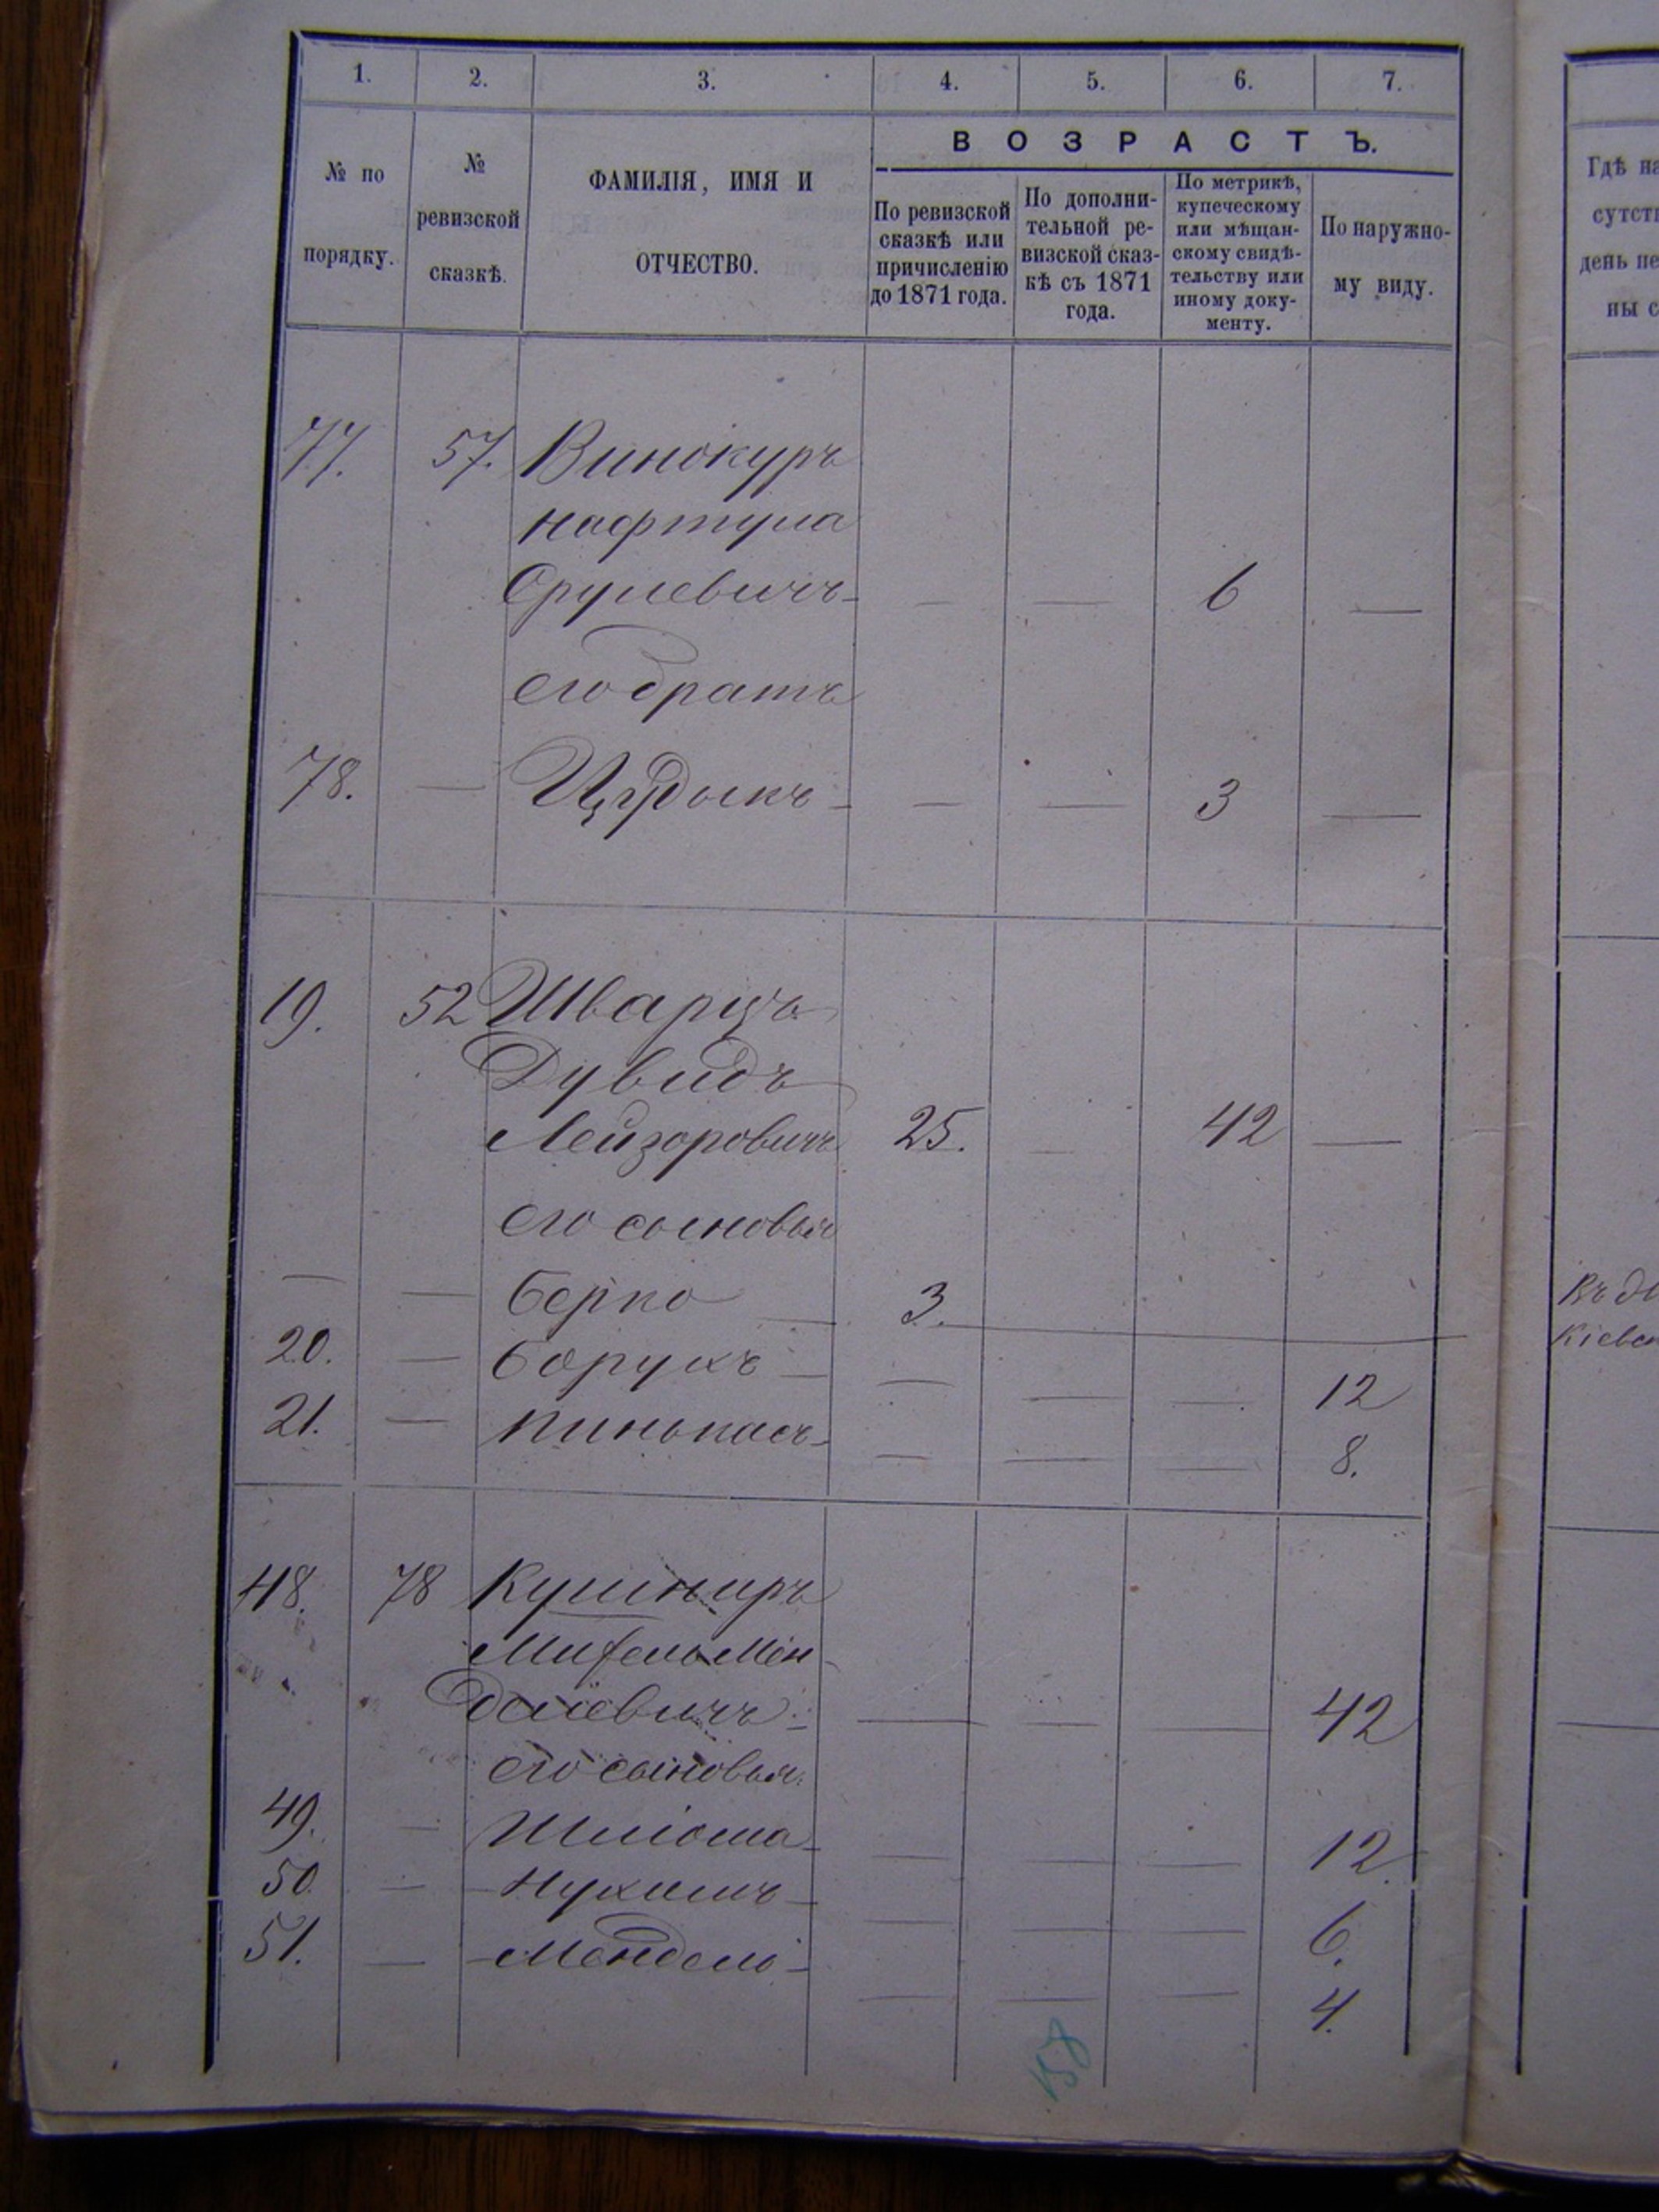 1. 2. 3. 4. 5. 6. 7.
№ по порядку.
№ ревизской сказкѣ.
ФАМИЛІЯ, ИМЯ И ОТЧЕСТВО.
ВОЗРАСТЪ.
По ревизской сказкѣ или причисленію до 1871 года.
По дополни-тельной ре-визской сказ-кѣ съ 1871 года.
По метрикѣ, купеческому или мѣщан-скому свидѣ-тельству или иному доку-менту.
По наружно-му виду.
77. 57. Винокуръ
Нафтула
Срулевичъ — — 6 —
его братъ
78. — — — 3 —
19. 52 Шварцъ
Дувидъ
Лейзоровичъ 25. — 42 —
его сыновья
— — Берко — 3.
20. — Борухъ — — — — 12
21. — Пинькасъ — — — — 8.
48. 78 Кушниръ
Мен
делевичъ — — — 42
его сыновья
49. — Шліома — — — — 12.
50. — Нухимъ — — — — 6.
51. — Мендель — — — — 4.
Гдѣ на
сутст
день пе
ны с
Въ
Кіевск